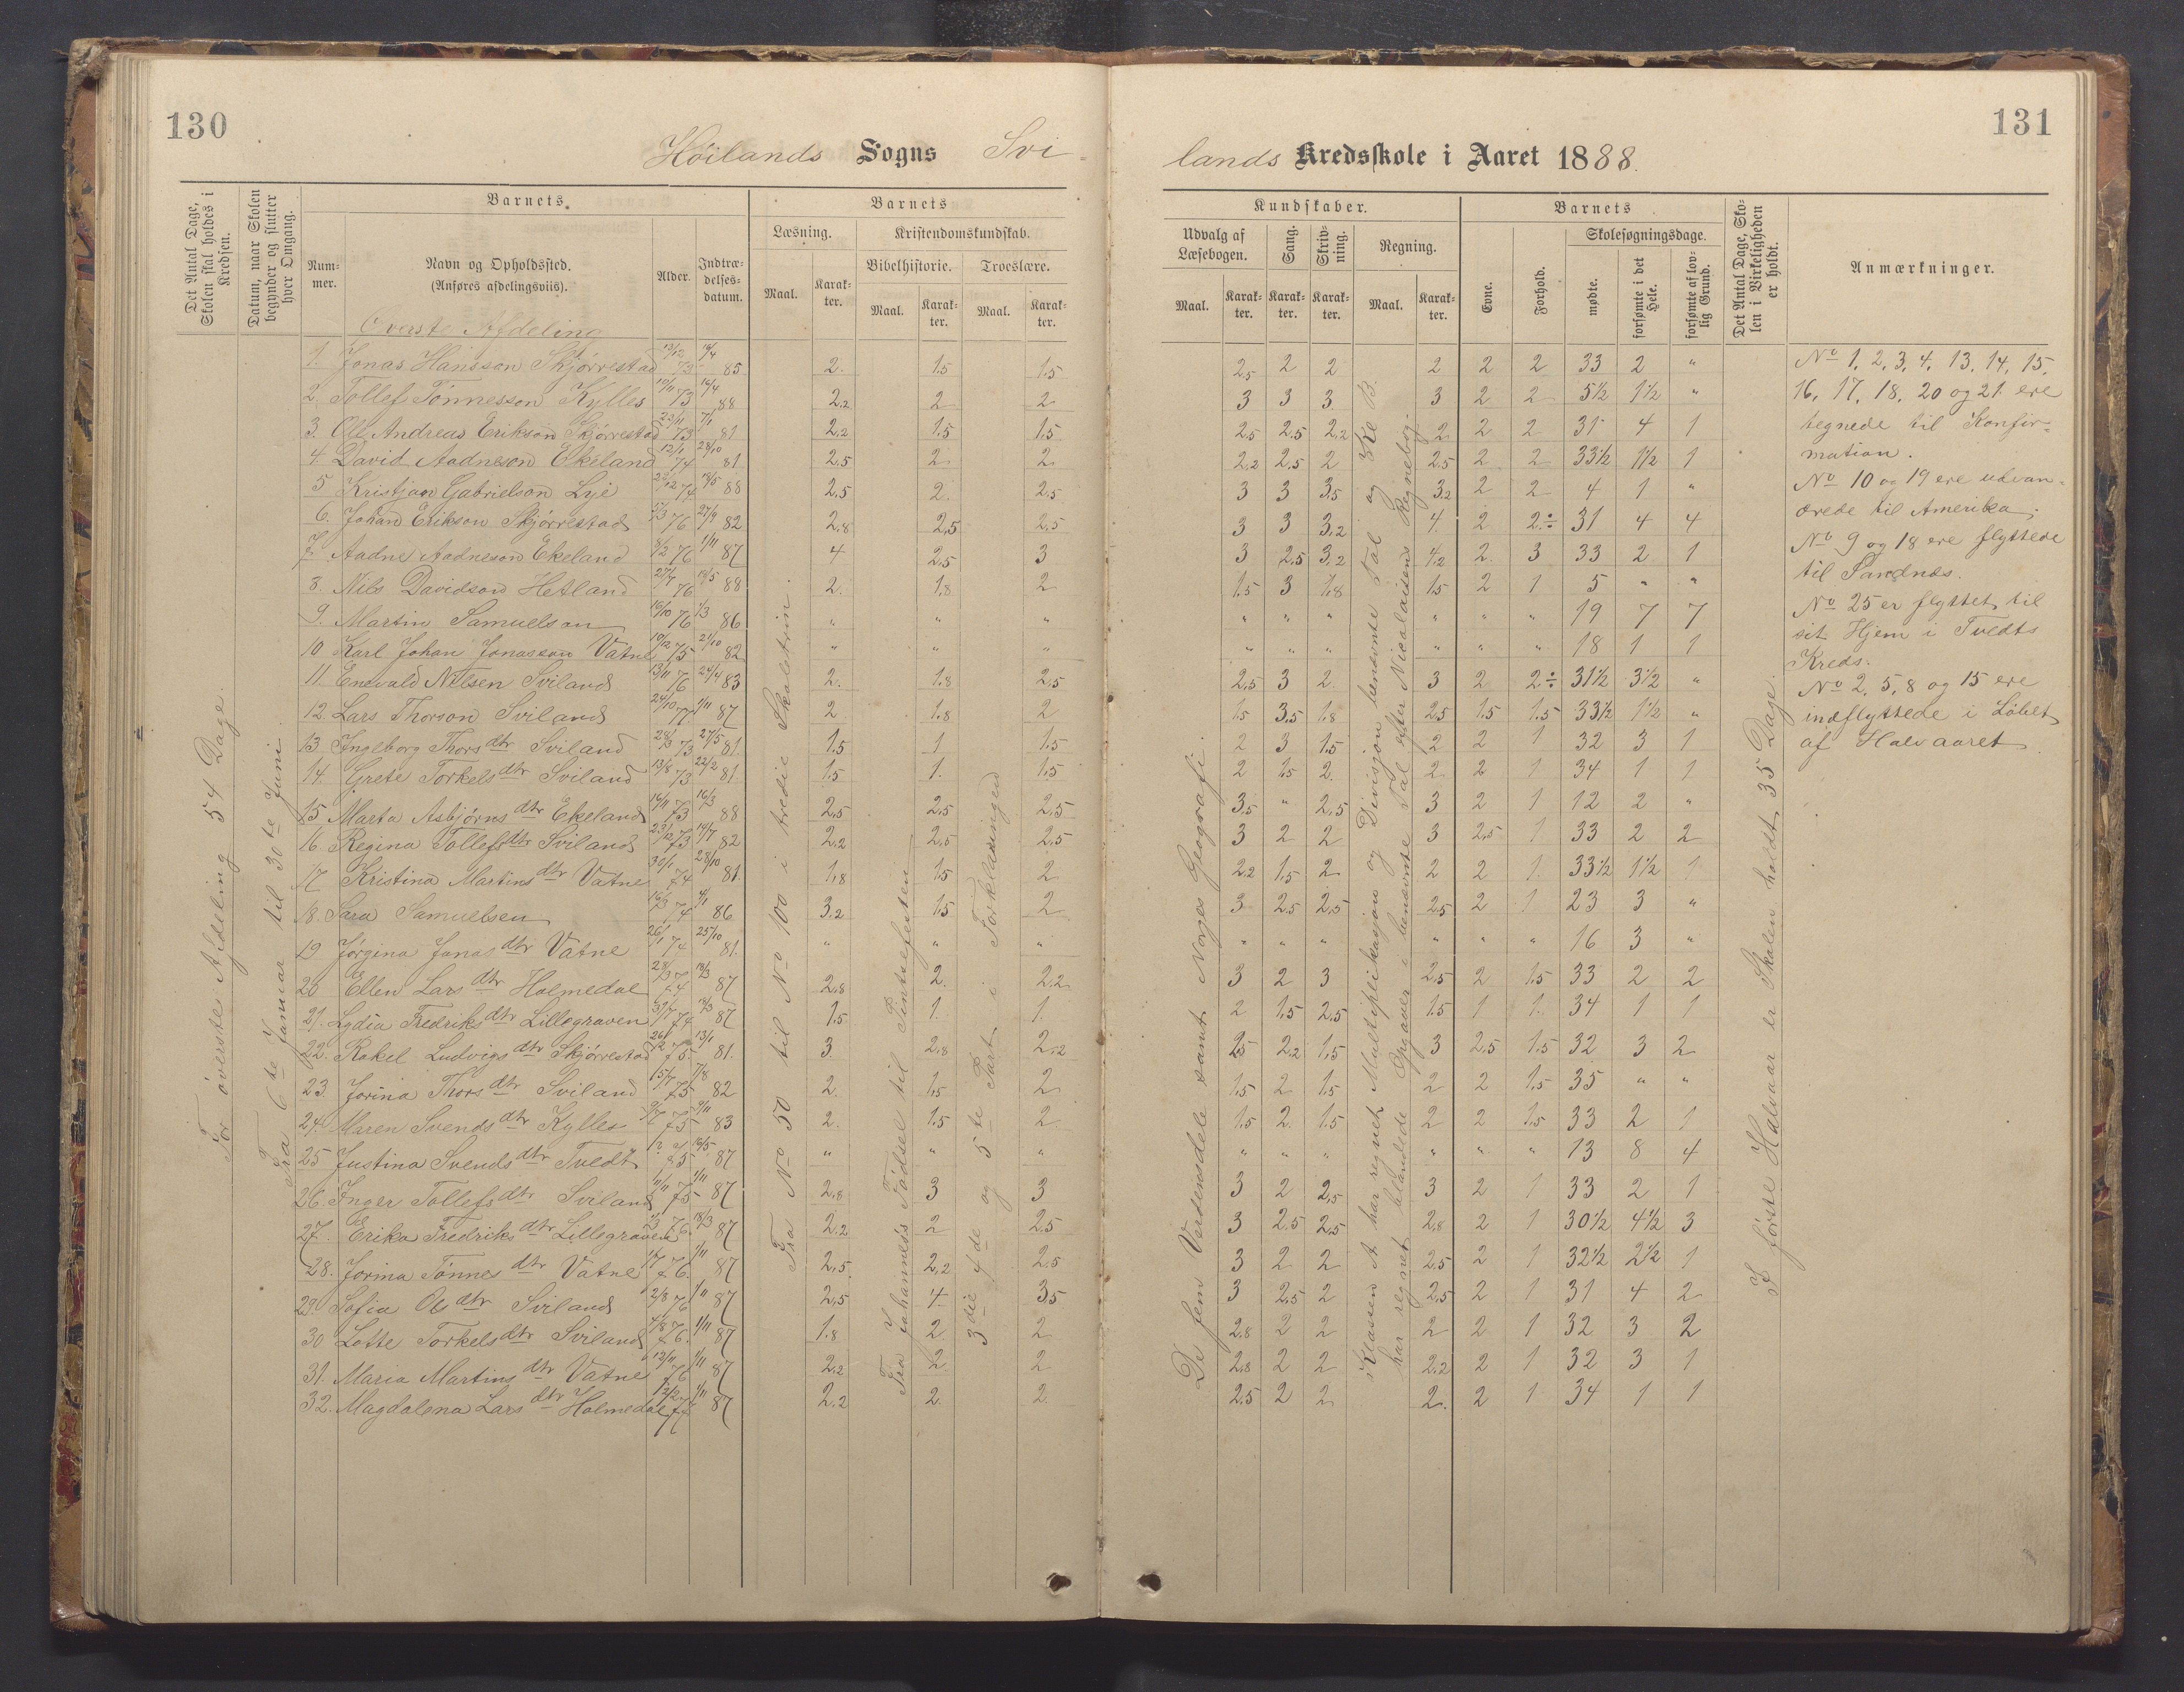 130
131
Höilands Sogns Svi-
lands Kredsskole i Aaret 1888.
Det Antal Dage, Skolen skal holdes i Kredsen.
Datum, naar Skolen begynder og slutter hver Omgang.
Barnets
Num-mer.
Navn og Opholdssted.
(Anføres afdelingsviis).
Alder.
Indtræ-delses-datum.
Barnets
Læsning.
Kristendomskundskab.
Bibelhistorie.
Troeslære.
Maal.
Karak-ter.
Maal.
Karak-ter.
Maal.
Karak-ter.
Kundskaber.
Udvalg af Læsebogen.
Sang.
Skriv-ning.
Regning.
Maal.
Karak-ter.
Karak-ter.
Karak-ter.
Maal.
Karak-ter.
Barnets
Evne.
Forhold.
Skolesøgningsdage.
mødte.
forsømte i det Hele.
forsømte af lov-lig Grund.
Det Antal Dage, Sko-len i Virkeligheden er holdt.
Anmærkninger.
For överste Afdeling 54 Dage.
Fra 6te Januar til 30te Juni.
Överste Afdeling
1. Jonas Hansson Skjörrestad 13/12 73 16/4 85 2. 1.5 1.5 2,5 2 2 2 2 2 33 2 "
2. Tollef Tönnesson Kylles 10/11 73 16/4 88 2,2 2 2 3 3 3 3 2 2 5½ 1½ "
3. Ole Andreas Erikson Skjörrestad 23/11 73 7/1 81 2,2 1.5 1.5 2,5 2.5 2,2 2 2 2 31 4 1
4. David Aadneson Ekeland 12/1 74 28/10 81 2.5 2 2 2,2 2,5 2 2.5 2 2 33½ 1½ 1
5 Kristjan Gabrielson Lye 74 14/5 88 2.5 2. 2.5 3 3 3,5 3,2 2 2 4 1 "
6. Johan Erikson Skjörrestad 76 27/9 82 2.8 2,5 2,5 3 3 3,2 4. 2 2÷ 31 4 4
7. Aadne Aadneson Ekeland 8/2 76 1/11 87 4 2,5 3 3 2,5 3,2 4,2 2. 3 33 2 1
8. Nils Davidson Hetland 27/7 76 14/5 88 2. 1,8 2 1.5 3 1,8 1.5 2 1 5 " "
9. Martin Samuelson 16/10 76 1/3 86 " " " " " " " " " 19 7 7
10 Karl Johan Jonasson Vatne 10/12 75 21/10 82 " " " " " " " " " 18 1 1
11. Enevald Nilsen Sviland 13/11 76 24/4 83 2. 1,8 2,5 2,5 3 2. 3 2 2÷ 31½ 3½ "
12. Lars Thorson Sviland 24/10 77 1/11 87 2 1.8 2 1.5 3,5 1.8 2.5 1.5 1.5 33½ 1½ "
13 Ingeborg Thorsdtr Sviland 28/3 73 27/5 81. 1.5 1 1.5 2 3 1.5 2 2 1 32 3 1
14. Grete Torkelsdtr Sviland 13/8 73 22/2 81. 1.5 1. 1.5 2 1.5 2. 2 2 1 34 1 1
15 Marta Asbjörnsdtr Ekeland 16/11 73 16/3 88 2,5 2,5 2,5 3,5 " 2,5 3 2 1 12 2 "
16. Regina Tollefsdtr Sviland 23/12 73 14/7 82 2,2 2,5 2,5 3 2 2 3 2,5 1 33 2 2
17 Kristina Martinsdtr Vatne 30/1 74 28/10 81. 1,8 1.5 2 2,2 1,5 2 2 2 1. 33½ 1½ 1
18. Sara Samuelsen 16/3 74 4/1 86 3,2 1.5 2 3 2.5 2,5 2.5 2 1 23 3 "
19 Jörgina Jonasdtr Vatne 26/1 74 25/10 81. " " " " " " " " " 16 3 "
20 Ellen Larsdtr Holmedal 28/3 74 18/3 87 2,8 2. 2,2 3 2 3 2.5 2 1.5 33 2 2
21. Lydia Fredriksdtr Lillegraven 74 18/3 87 1.5 1. 1. 2 1.5 2.5 1.5 1 1. 34 1 1
22. Rakel Ludvigsdtr Skjörrestad 75. 13/1 81. 3. 2,8 2,2 2.5 2,2 1.5 3 2.5 1.5 32 3 2
23. Jorina Thorsdtr Sviland 15/7 75 7/8 82 2. 1.5 2 1.5 2 1.5 2 2 1.5 35 " "
24. Maren Svendsdtr Kylles 75 9/11 83 2. 1.5 2. 1.5 2. 1.5 2 2 1.5 33 2 1
25 Justina Svendsdtr Tvedt 75 16/5 87 " " " " " " " " " 13 8 4
26. Inger Tollefsdtr Sviland 11/11 75 1/11 87 2,8 3 3 3 2 2,5 3 2 1 33 2 1
27. Erika Fredriksdtr Lillegraven 76. 18/3 87 2,2 2 2,5 3 2.5 2,5 2,8 2 1 30½ 4½ 3
28. Jorina Tönnesdtr Vatne 76. 1/11 87 2,5 2,2 2,5 3 2 2 2,5 2 1 32½ 2½ 1
29. Sofia Oledtr Sviland 2/8 76 1/11 87 2,5 4. 3,5 3 2,5 2 2,5 2 1 31 4 2
30 Lotte Torkelsdtr Sviland 7/8 76. 1/11 87 1.8 2 2 2.8 2 2 2 2 1 32 3 2
31. Maria Martinsdtr Vatne 12/11 76 1/11 87 2,2 2. 2 2,8 2 2 2,2 2 1 32 3 1
32. Magdalena Larsdtr Holmedal 12/2 77 1/11 87 2,2 2. 2. 2,5 2 2 2. 2 1 34 1 1
Fra No 50 til No 100 i tredie Skoletrin.
Fra Johannes's Födsel til Pintsefesten
3die 4de og 5te Part i Forklaringen
De fem Verdensdele samt Norges Geografi.
i Klassen A har regnet Multiplikasjon og Divisjon benævnte Tal og Kl B.
har regnet blandede Opgaver i benævnte Tal efter Nicolaisens Regnebog.
I første Halvaar er Skolen holdt 35 Dage.
No 1, 2, 3, 4, 13, 14, 15,
16, 17, 18, 20 og 21 ere
tegnede til Konfir=
mation.
No 10 og 19 ere udvan=
drede til Amerika.
No 9 og 18 ere flyttede
til Sandnes.
No 25 er flyttet til
sit Hjem i Tvedts
Kreds.
No 2, 5, 8 og 15 ere
indflyttede i Löbet
af Halvaaret.